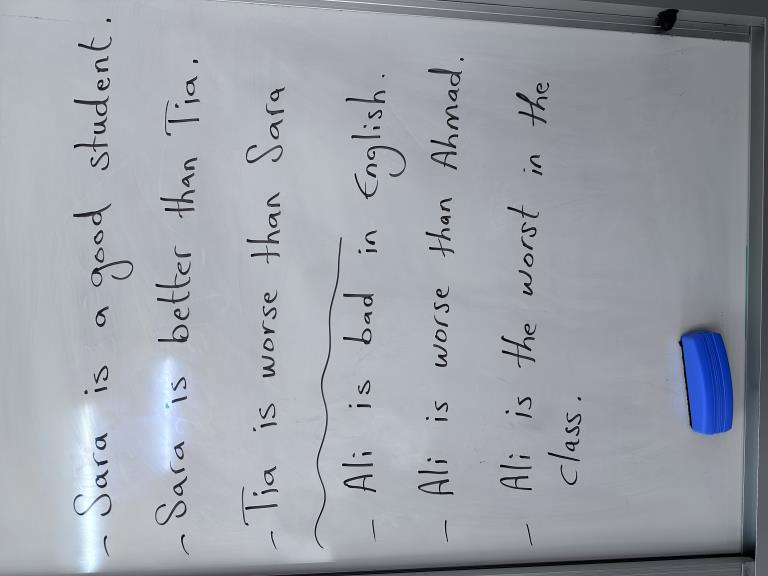 - Sara is a good student.
- Sara is better than Tia.
- Tia is worse than Sara
- Ali is bad in English.
- Ali is worse than Ahmad.
- Ali is the worst in the
class.